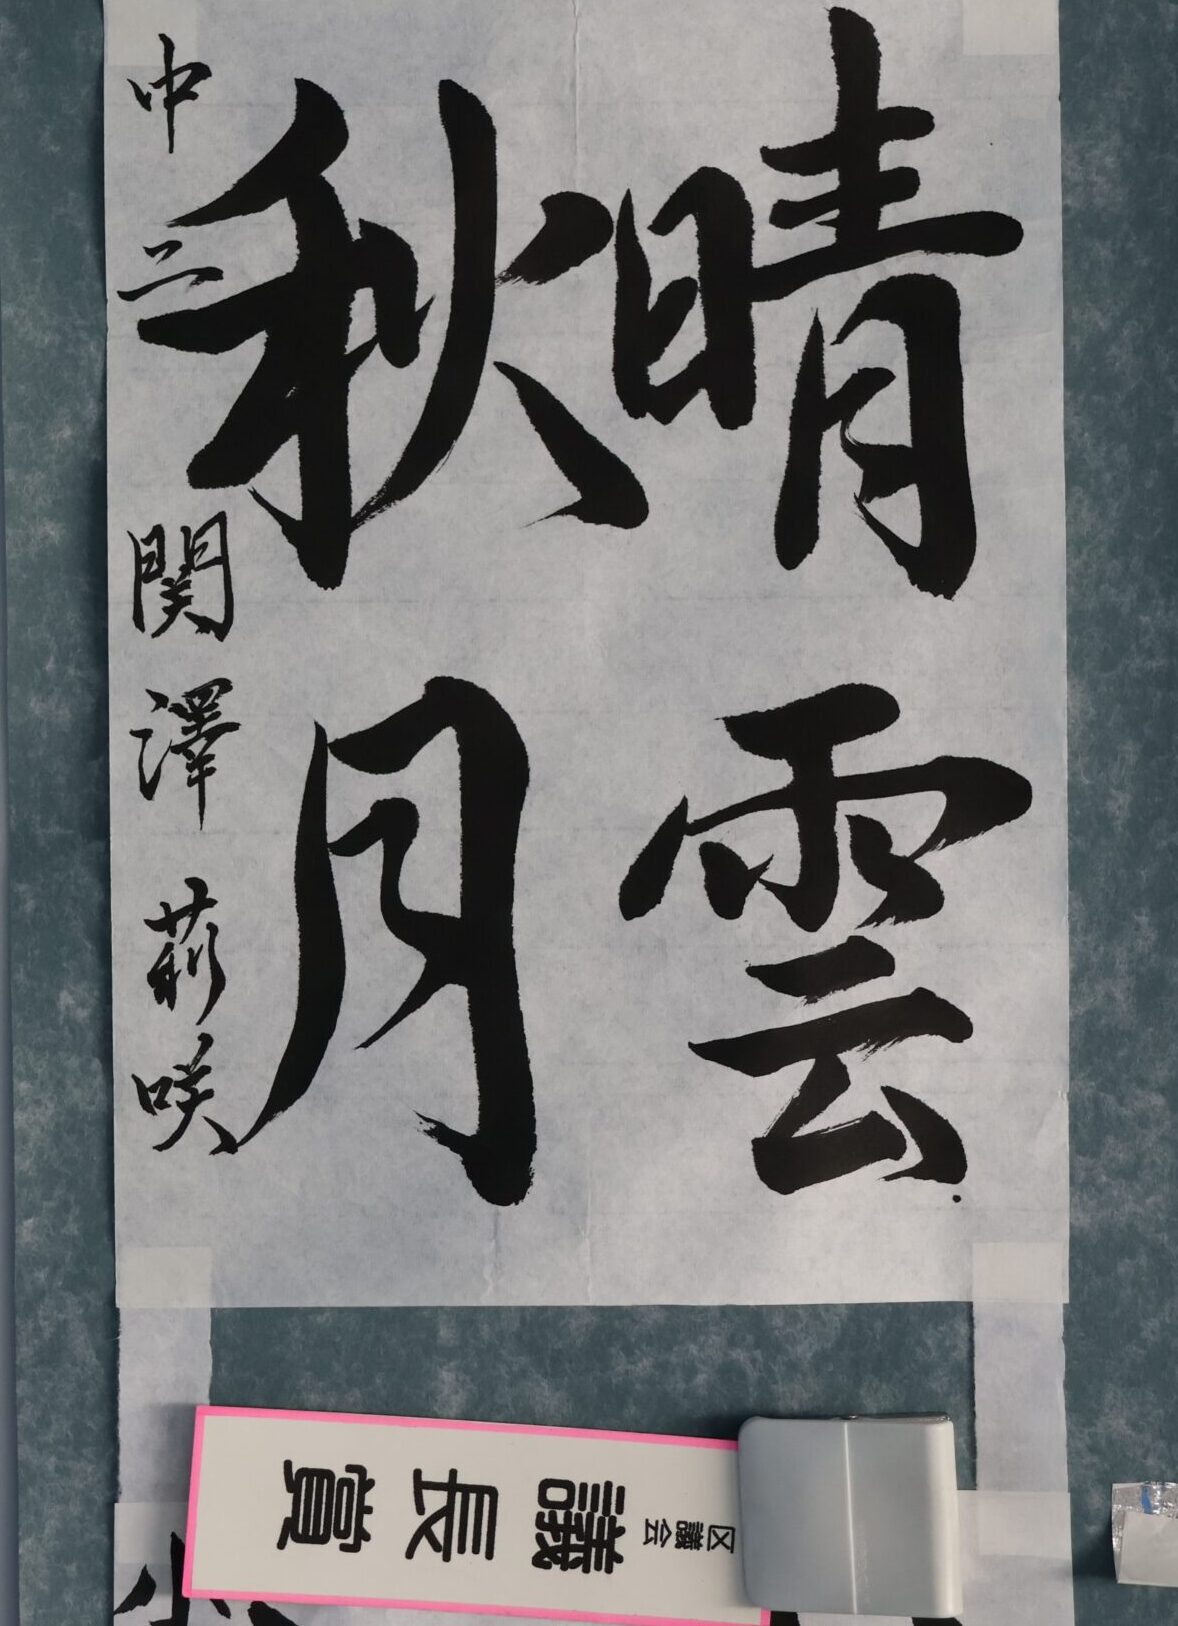 晴雲
秋月
中二 関澤莉咲
区議会
議長賞